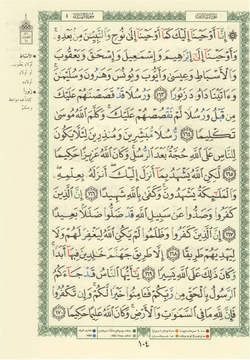 ٤
۞ إِنَّآ أَوْحَيْنَآ إِلَيْكَ كَمَآ أَوْحَيْنَآ إِلَىٰ نُوحٍ وَٱلنَّبِيِّـۧنَ مِنۢ بَعْدِهِۦۚ
وَأَوْحَيْنَآ إِلَىٰٓ إِبْرَٰهِيمَ وَإِسْمَٰعِيلَ وَإِسْحَٰقَ وَيَعْقُوبَ
وَٱلْأَسْبَاطِ وَعِيسَىٰ وَأَيُّوبَ وَيُونُسَ وَهَٰرُونَ وَسُلَيْمَٰنَۚ
وَءَاتَيْنَا دَاوُۥدَ زَبُورًا ١٦٣ وَرُسُلًا قَدْ قَصَصْنَٰهُمْ عَلَيْكَ
مِن قَبْلُ وَرُسُلًا لَّمْ نَقْصُصْهُمْ عَلَيْكَۚ وَكَلَّمَ ٱللَّهُ مُوسَىٰ
تَكْلِيمًا ١٦٤ رُّسُلًا مُّبَشِّرِينَ وَمُنذِرِينَ لِئَلَّا يَكُونَ
لِلنَّاسِ عَلَى ٱللَّهِ حُجَّةٌۢ بَعْدَ ٱلرُّسُلِۚ وَكَانَ ٱللَّهُ عَزِيزًا حَكِيمًا
١٦٥ لَّٰكِنِ ٱللَّهُ يَشْهَدُ بِمَآ أَنزَلَ إِلَيْكَۖ أَنزَلَهُۥ بِعِلْمِهِۦۖ
وَٱلْمَلَٰٓئِكَةُ يَشْهَدُونَۚ وَكَفَىٰ بِٱللَّهِ شَهِيدًا ١٦٦ إِنَّ ٱلَّذِينَ
كَفَرُوا۟ وَصَدُّوا۟ عَن سَبِيلِ ٱللَّهِ قَدْ ضَلُّوا۟ ضَلَٰلًۢا بَعِيدًا
١٦٧ إِنَّ ٱلَّذِينَ كَفَرُوا۟ وَظَلَمُوا۟ لَمْ يَكُنِ ٱللَّهُ لِيَغْفِرَ لَهُمْ وَلَا
لِيَهْدِيَهُمْ طَرِيقًا ١٦٨ إِلَّا طَرِيقَ جَهَنَّمَ خَٰلِدِينَ فِيهَآ أَبَدًاۚ
وَكَانَ ذَٰلِكَ عَلَى ٱللَّهِ يَسِيرًا ١٦٩ يَٰٓأَيُّهَا ٱلنَّاسُ قَدْ جَآءَكُمُ
ٱلرَّسُولُ بِٱلْحَقِّ مِن رَّبِّكُمْ فَـَٔامِنُوا۟ خَيْرًا لَّكُمْۚ وَإِن تَكْفُرُوا۟
فَإِنَّ لِلَّهِ مَا فِى ٱلسَّمَٰوَٰتِ وَٱلْأَرْضِۚ وَكَانَ ٱللَّهُ عَلِيمًا حَكِيمًا ١٧٠
١٠٤